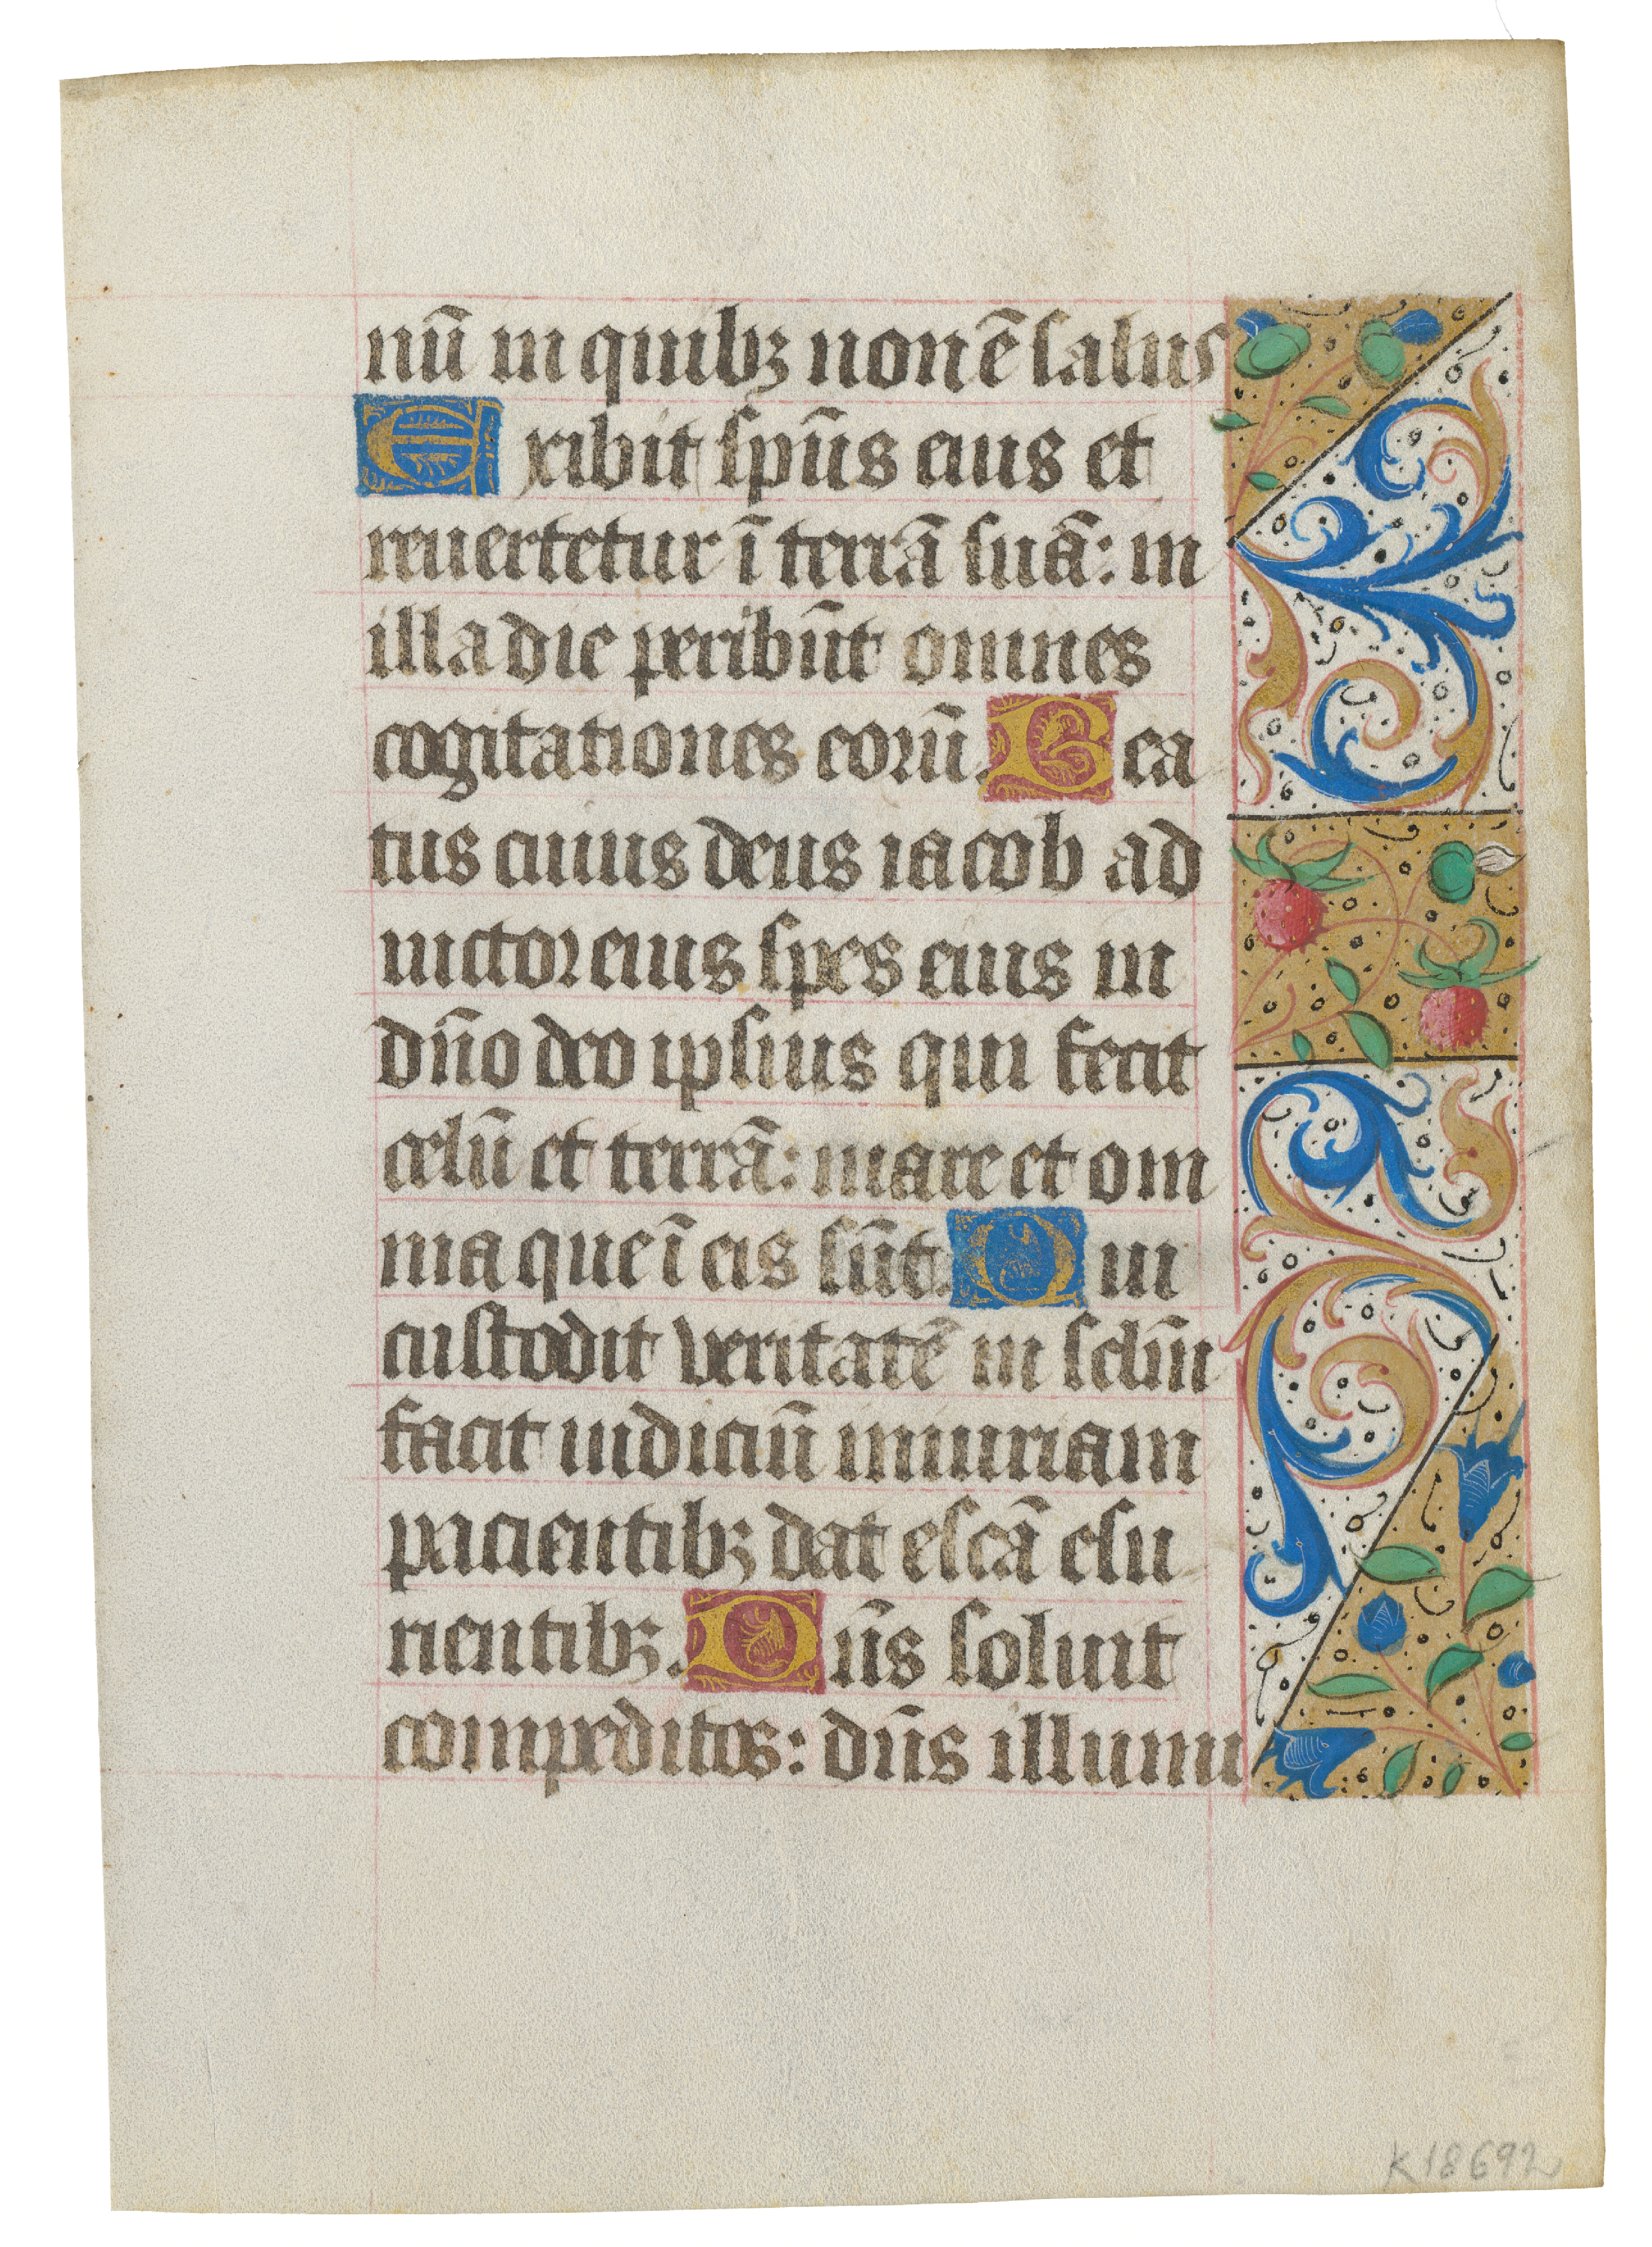 nū in quibꝫ non ē salus
Exibit sp̄us eius et
reuertetur ī terrā suā: in
illa die peribūt omnes
cogitationes eorū. Bea
tus cuius deus iacob ad
iuctor eius spes eius in
dn̄o deo ipsius qui fecit
celū et terrā: mare et om
nia que ī eis sūt. Qui
custodit veritatē in sclm̄
facit iudiciū iniuriam
pacientibꝫ dat escā esu
rientibꝫ. Dn̄s soluit
compeditos: dn̄s illumi
K18692